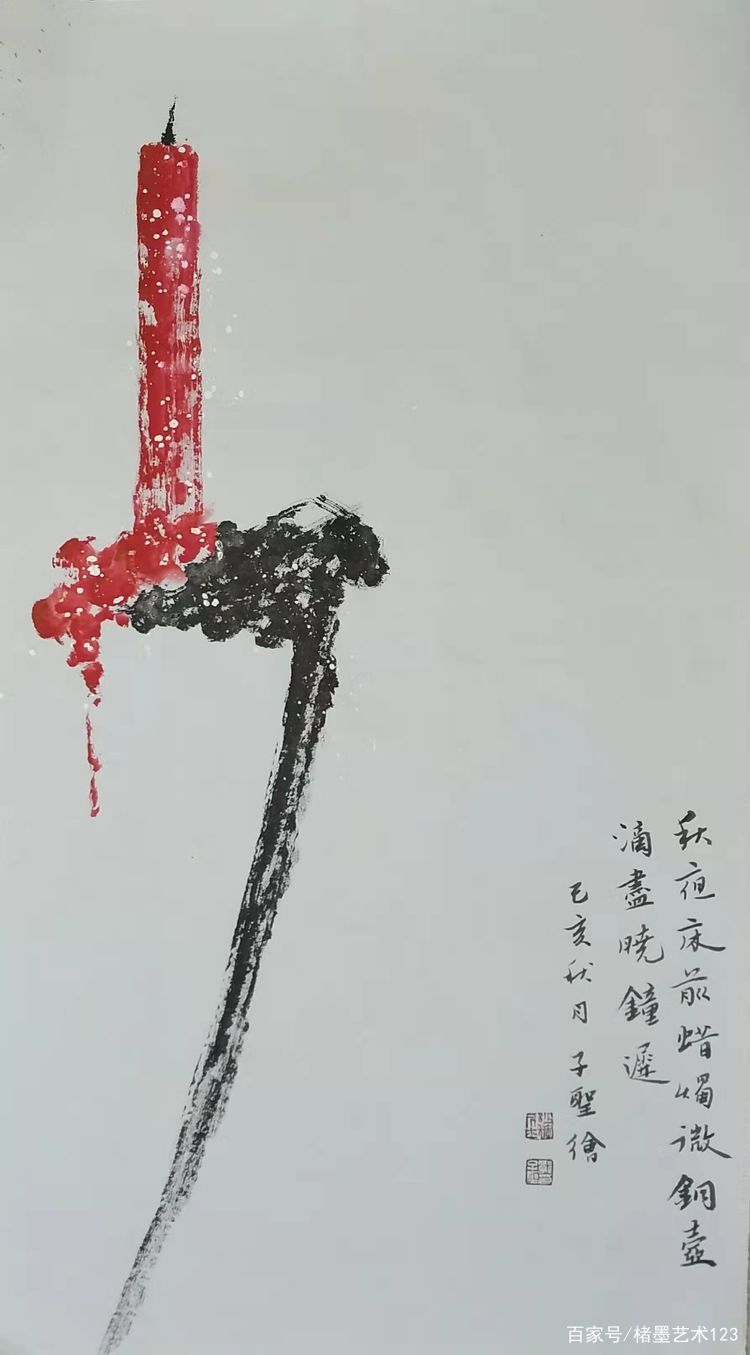 秋夜床前蜡烛微銅壺
滴盡曉鐘遲
己亥秋月子聖繪
百家号/楮墨艺术123